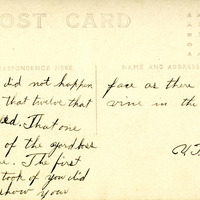 POST CARD
RESPONDENCE HERE
NAME AND ADDRESS
did not happen
That twelve that
ed. That one
of the yard boss
e. The first
took of you did
show your
face as there
vine in the